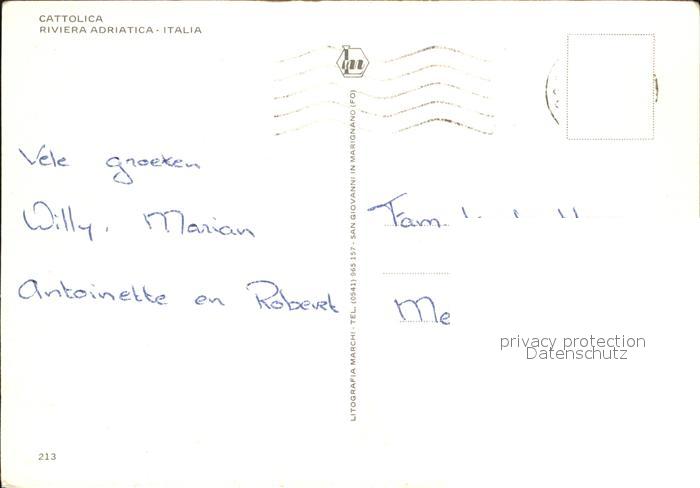 CATTOLICA
RIVIERA ADRIATICA - ITALIA
Vele groeken
Willy, Marian
Antoinette en Roberet
LITOGRAFIA MARCHI - TEL. (0541) 965 157 - SAN GIOVANNI IN MARIGNANO (FO)
Fam.
Me
privacy protection
Datenschutz
213